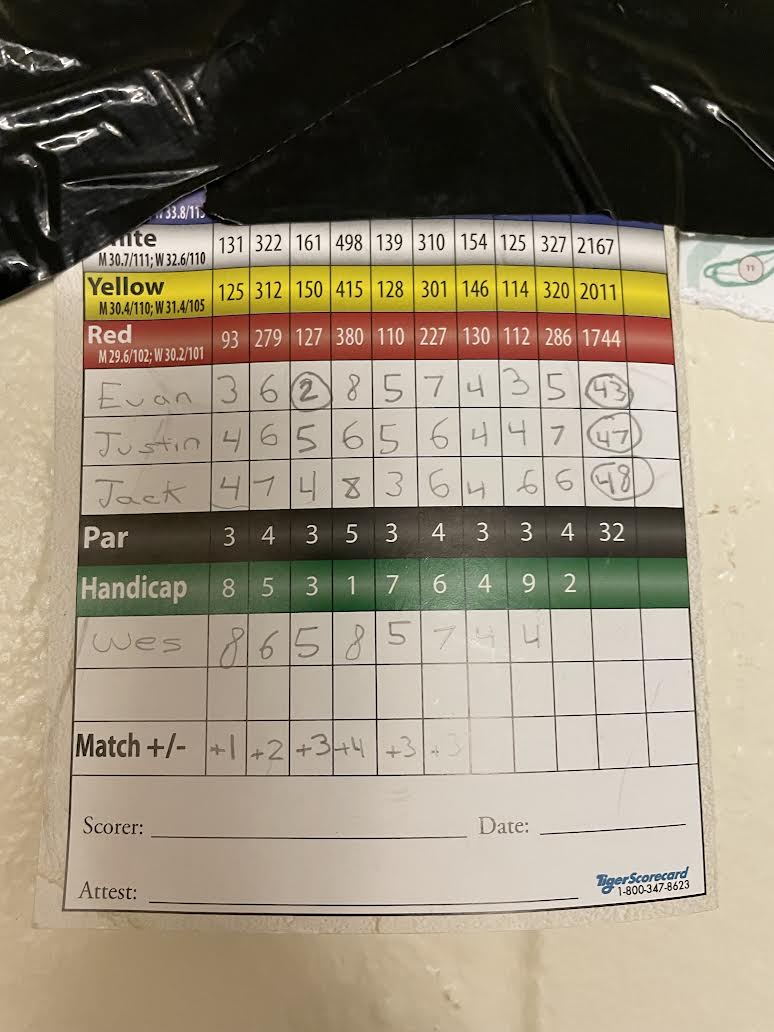 33.8/113
ite
M 30.7/111; W 32.6/110 131 322 161 498 139 310 154 125 327 2167
Yellow
M 30.4/110; W 31.4/105 125 312 150 415 128 301 146 114 320 2011
11
Red
M 29.6/102; W 30.2/101 93 279 127 380 110 227 130 112 286 1744
Evan 3 6 2 8 5 7 4 3 5 43
Justin 4 6 5 6 5 6 4 4 7 47
Jack 4 7 4 8 3 6 4 6 6 48
Par 3 4 3 5 3 4 3 3 4 32
Handicap 8 5 3 1 7 6 4 9 2
Wes 8 6 5 8 5 7 4 4
Match +/- +1 +2 +3 +4 +3 +3
Scorer: Date:
Attest:
TigerScorecard
1-800-347-8623